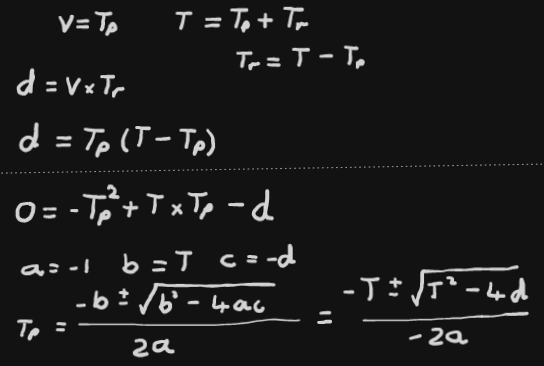 v = Tp    T = Tp + Tr
Tr = T - Tp
d = v × Tr
d = Tp (T - Tp)
0 = -Tp² + T × Tp - d
a = -1  b = T  c = -d
Tp = (-b ± √(b² - 4ac)) / 2a = (-T ± √(T² - 4d)) / -2a